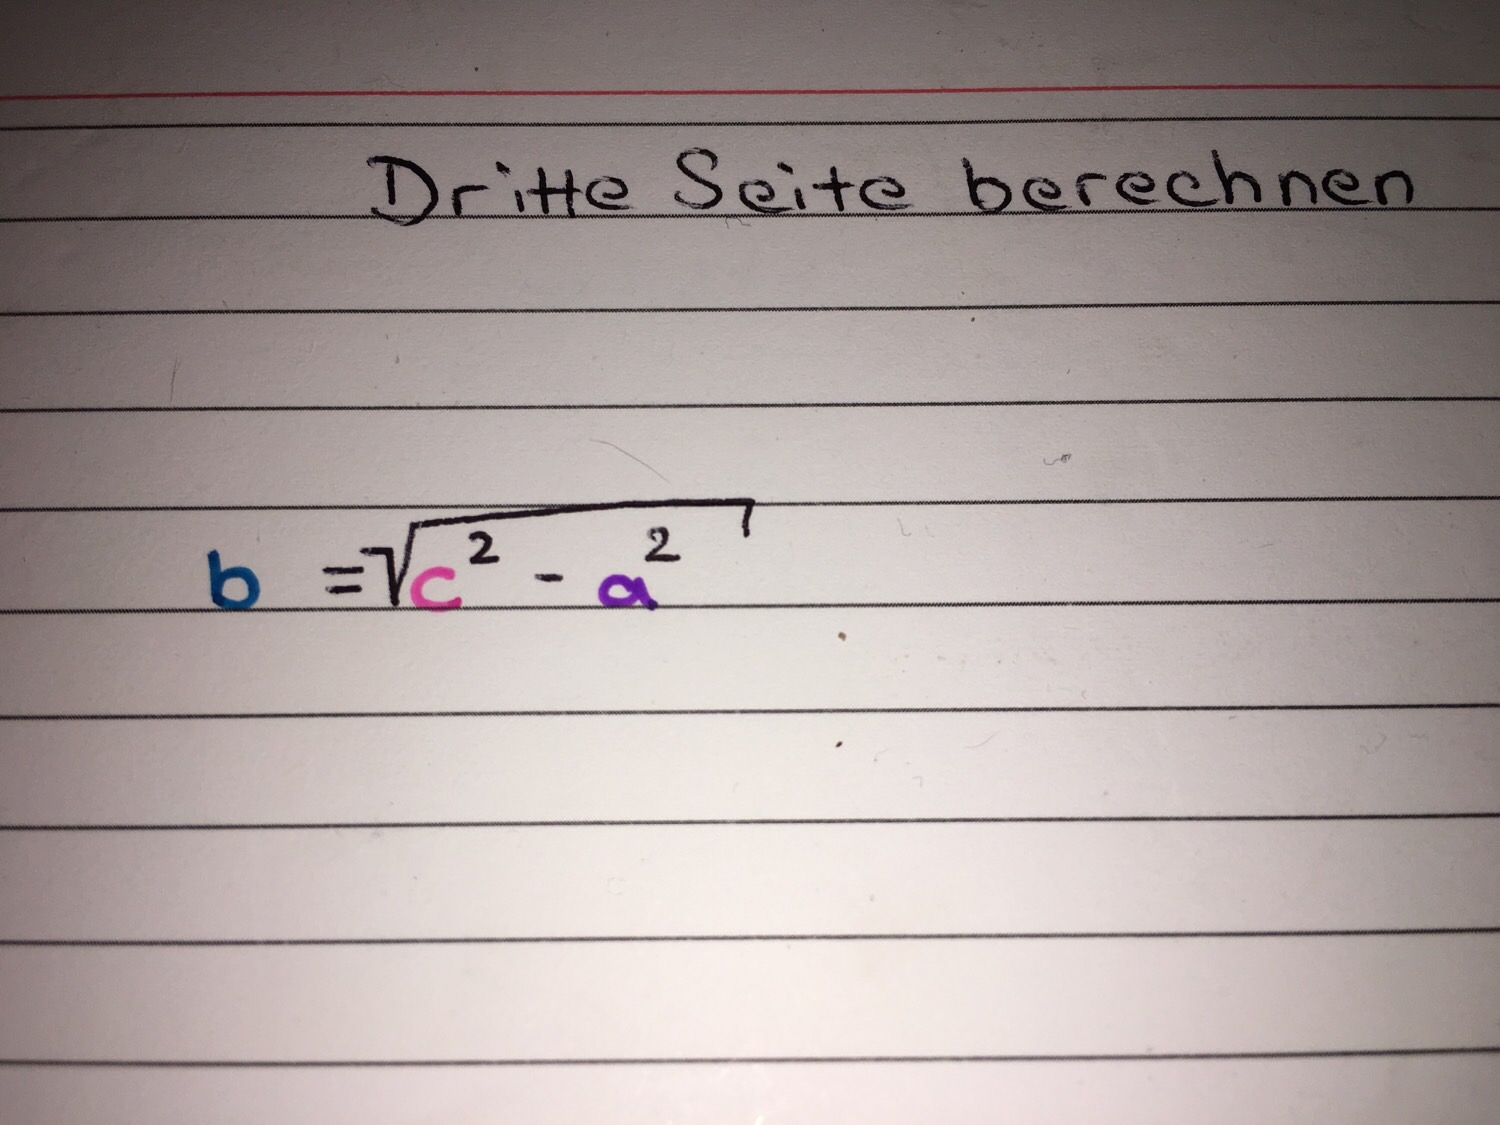 Dritte Seite berechnen
b = √c² - a²